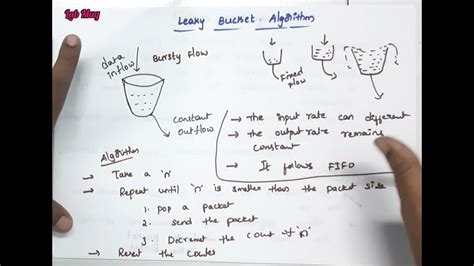 Lab Mug
Leaky Bucket Algorithm
data
inflow
Bursty flow
constant
outflow
Fixed
flow
→ the input rate can different
→ the output rate remains
constant
→ It follows FIFO
Algorithm
→ Take a 'n'
→ Repeat until 'n' is smaller than the packet size
1. pop a packet
2. send the packet
3. Dicrement the count of 'n'
→ Reset the